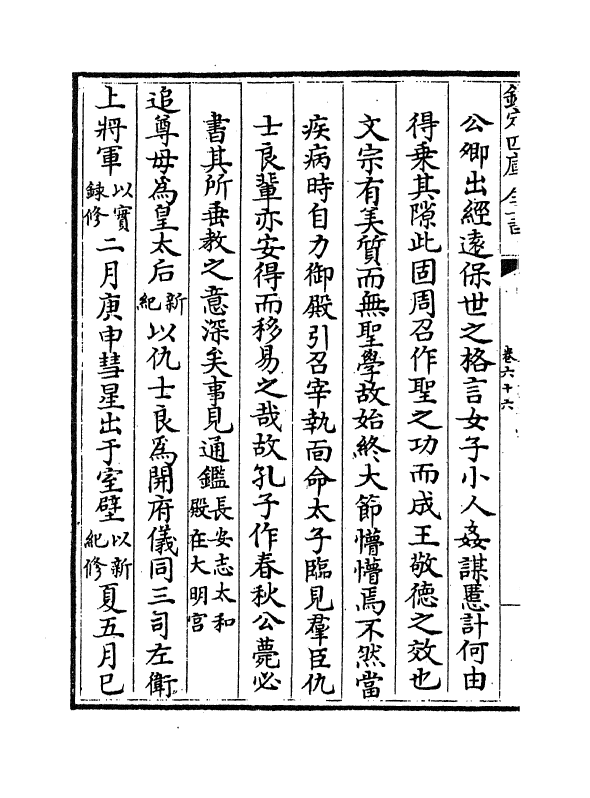 欽定四庫全書
卷六十六
公卿出經遠保世之格言女子小人姦謀慝計何由
得乗其隙此固周召作聖之功而成王敬德之效也
文宗有美質而無聖學故始終大節懵懵焉不然當
疾病時自力御殿引召宰執面命太子臨見羣臣仇
士良輩亦安得而移易之哉故孔子作春秋公薨必
書其所垂教之意深矣事見通鑑長安志太和殿在大明宮
追尊母為皇太后新紀以仇士良為開府儀同三司左衛
上將軍以實録修二月庚申彗星出于室壁以新紀修夏五月巳